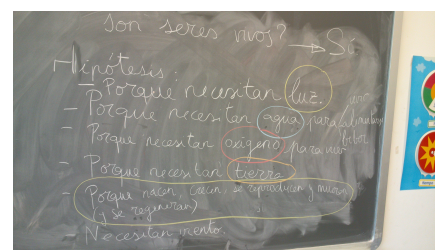 Son seres vivos? → Sí
Hipótesis:
- Porque necesitan luz.
- Porque necesitan agua para vivir alimentarse beber
- Porque necesitan oxígeno para vivir
- Porque necesitan tierra
- Porque nacen, crecen, se reproducen y mueren
(y se regeneran)
Necesitan